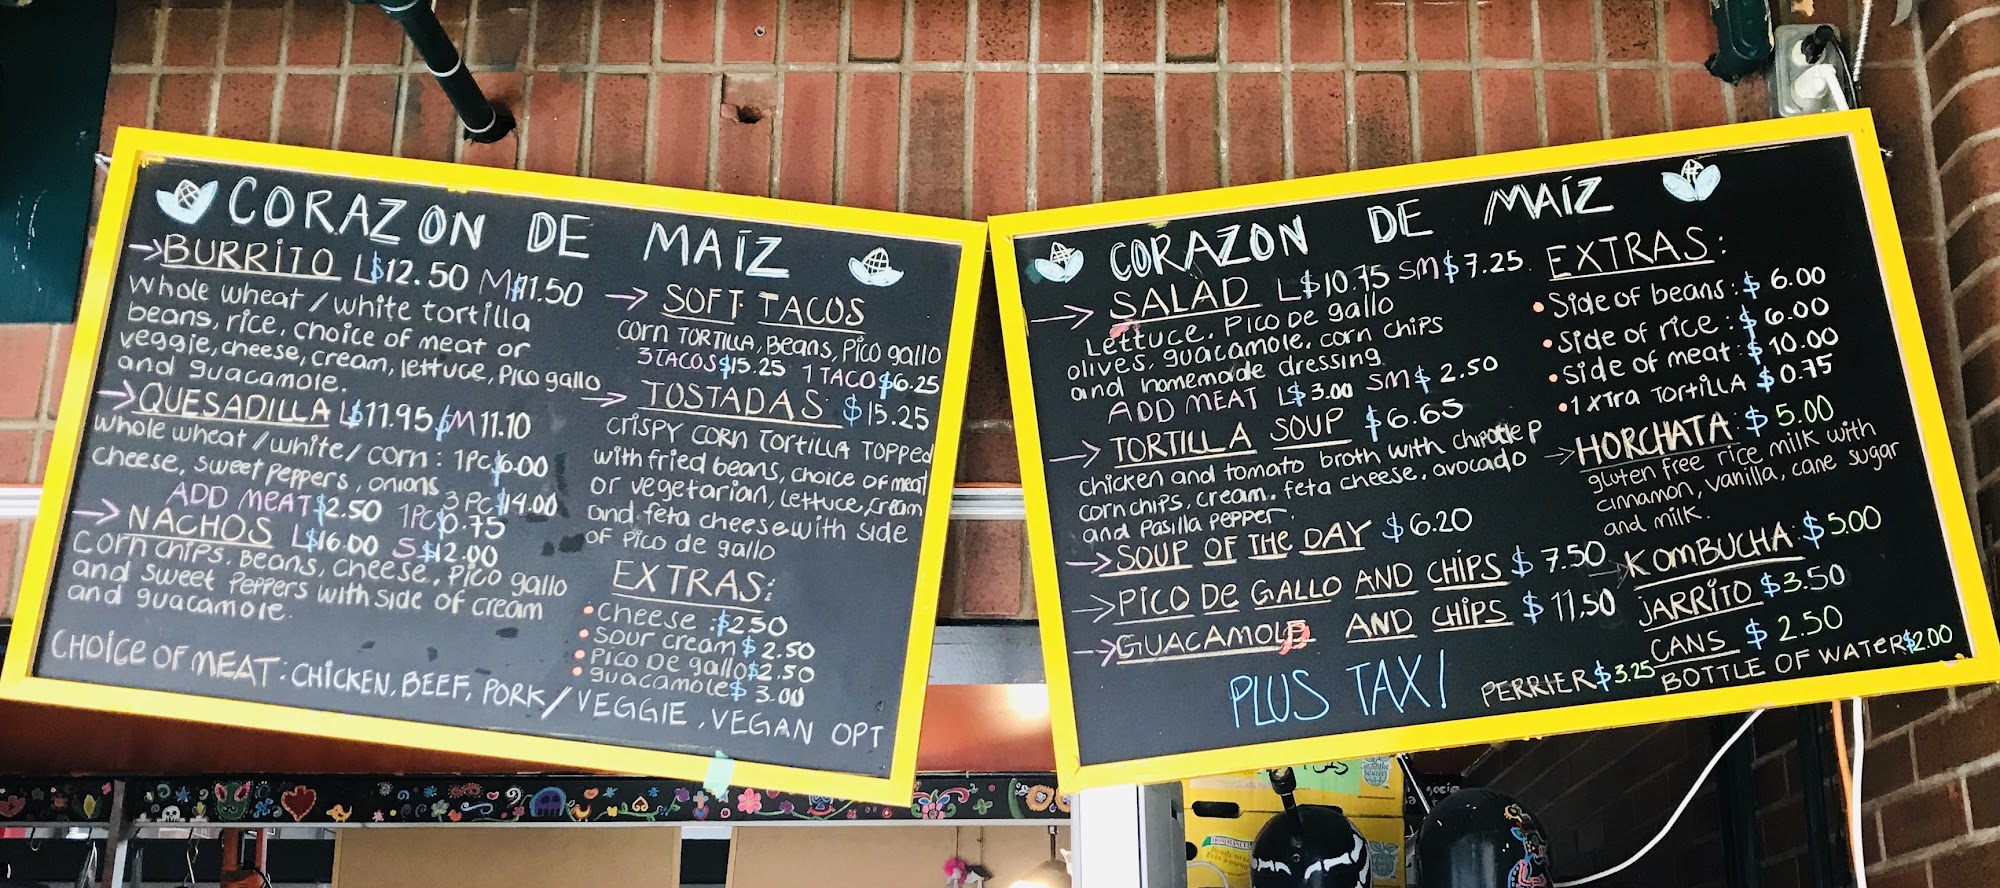 CORAZON DE MAÍZ
→BURRITO L$12.50 M$11.50
Whole wheat / white tortilla
beans, rice, choice of meat or
veggie, cheese, cream, lettuce, Pico gallo
and guacamole.
→QUESADILLA L$11.95/$M11.10
Whole wheat/white/corn: 1PC$6.00
cheese, sweet peppers, onions 3PC$14.00
ADD MEAT$2.50 1PC$0.75
→NACHOS L$16.00 S$12.00
Corn chips, Beans, cheese, Pico gallo
and sweet Peppers with side of cream
and guacamole.
→ SOFT TACOS
corn TORTILLA, Beans, Pico gallo
3TACOS$15.25 1TACO$6.25
→ TOSTADAS $15.25
CRISPY CORN TORTILLA TOPPED
with fried beans, choice of meat
or vegetarian, Lettuce, cream
and feta cheese with side
of Pico de gallo
EXTRAS:
• Cheese :$2.50
• Sour cream $2.50
• Pico De gallo$2.50
• guacamole$ 3.00
CHOICE OF MEAT: CHICKEN, BEEF, PORK/VEGGIE, VEGAN OPT
CORAZON DE MAÍZ
→ SALAD L$10.75 SM$7.25
Lettuce, Pico De gallo
olives, guacamole, corn chips
and homemade dressing
ADD MEAT L$3.00 SM$ 2.50
→ TORTILLA SOUP $6.65
chicken and tomato broth with chipotle P
corn chips, cream, feta cheese, avocado
and Pasilla Pepper.
→SOUP OF THE DAY $6.20
→PICO DE GALLO AND CHIPS $ 7.50
→GUACAMOLE AND CHIPS $ 11.50
PLUS TAX!
EXTRAS:
• Side of beans: $ 6.00
• Side of rice: $ 6.00
• Side of meat: $ 10.00
• 1 XTra TORTILLA $ 0.75
→HORCHATA: $ 5.00
gluten free rice milk with
cinnamon, vanilla, cane sugar
and milk.
→KOMBUCHA: $5.00
JARRITO $3.50
CANS $ 2.50
PERRIER$3.25 BOTTLE OF WATER$2.00